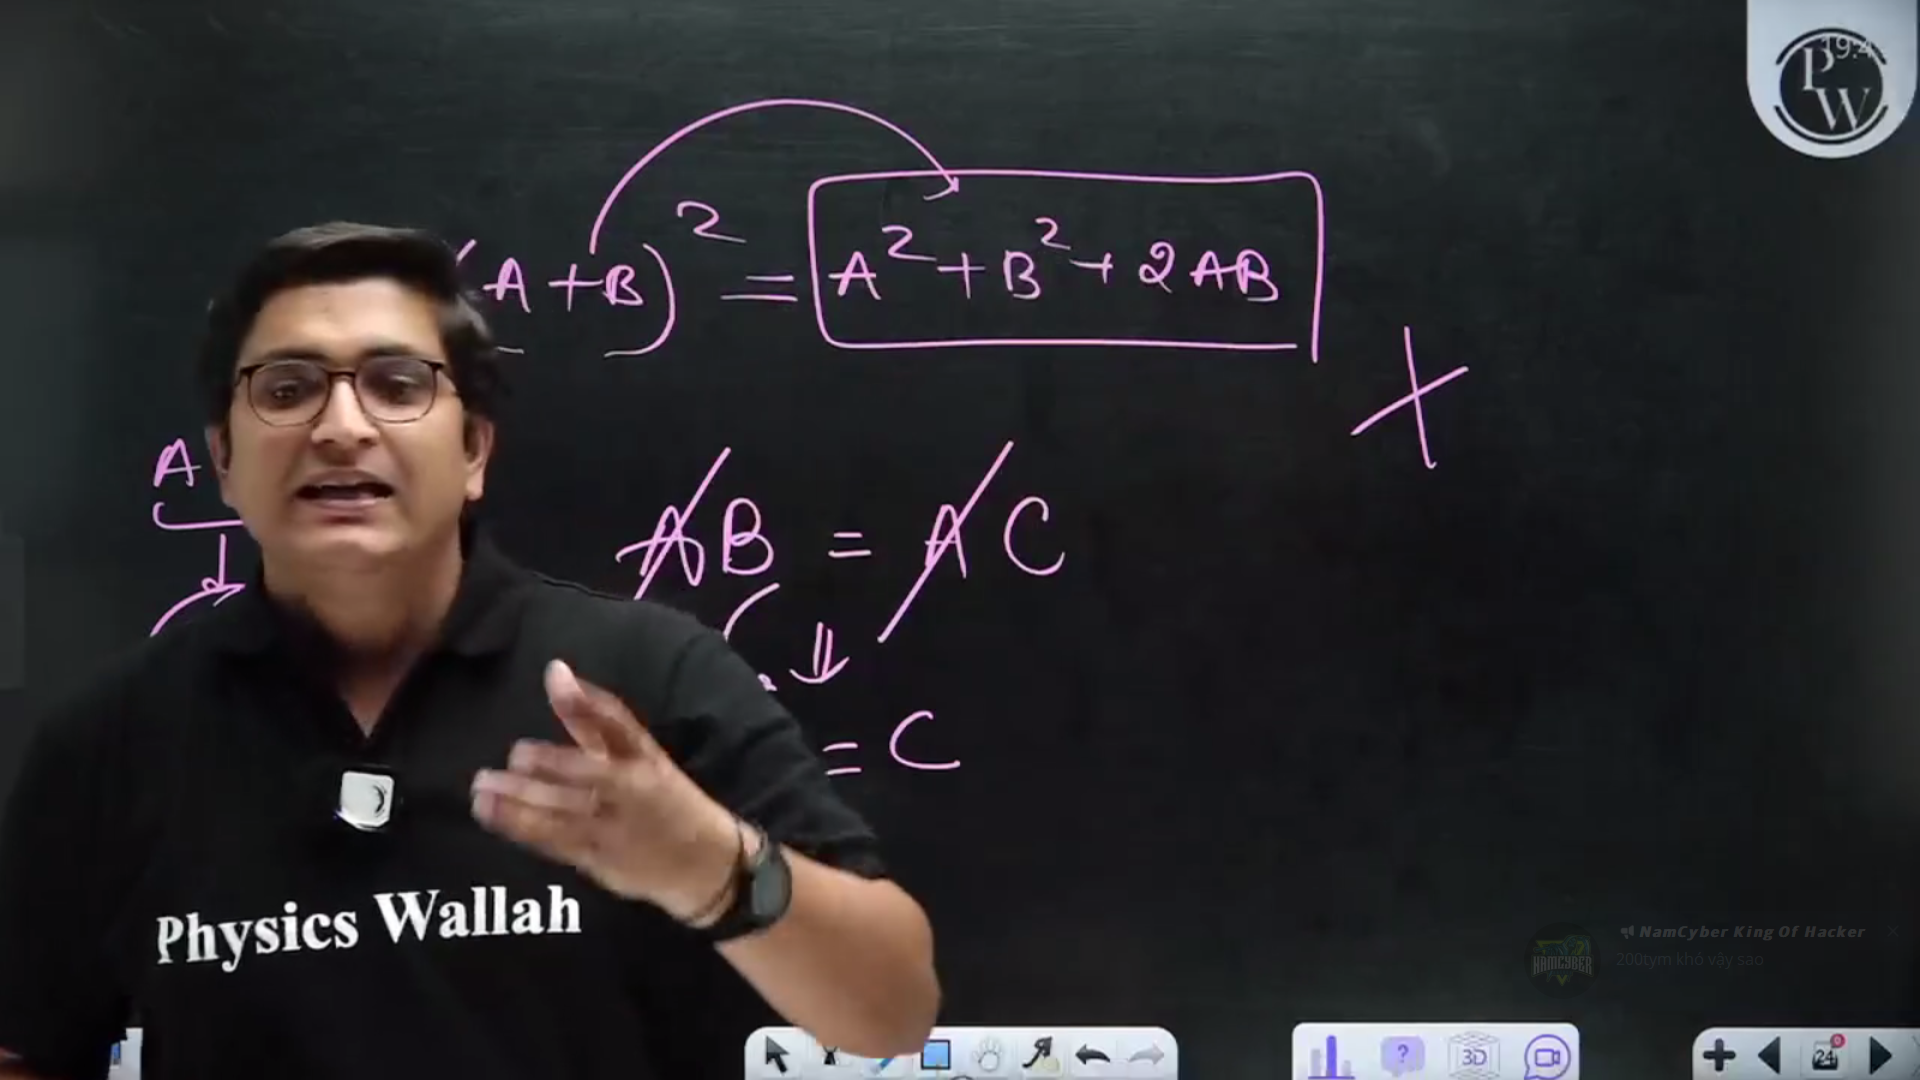 PW
19:4
(A + B)² = A² + B² + 2AB
A
AB = AC
= C
Physics Wallah
NamCyber King Of Hacker
NAMCYBER
200tym khó vậy sao
? 3D
24